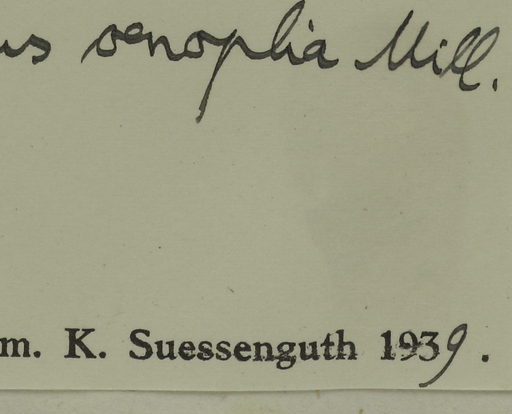 us oenoplia Mill.
m. K. Suessenguth 1939.